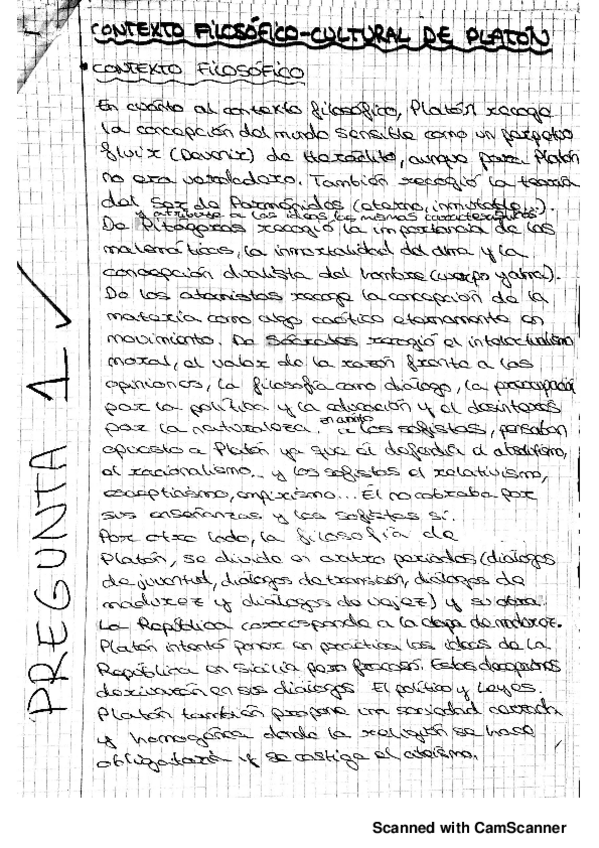 CONTEXTO FILOSÓFICO-CULTURAL DE PLATÓN
CONTEXTO FILOSÓFICO
En cuánto al contexto filosófico, Platón recoge
la concepción del mundo sensible como un perpetuo
fluir (Devenir) de Heráclito, aunque para Platón
no era verdadero. También recogió la teoría
del Ser de Parménides (eterno, inmutable...).
y atribuye a las ideas las mismas características
De Pitágoras recogió la importancia de las
matemáticas, la inmortalidad del alma y la
concepción dualista del hombre (cuerpo y alma).
De los atomistas recoge la concepción de la
materia como algo caótico eternamente en
movimiento. De Sócrates recogió el intelectualismo
moral, el valor de la razón frente a las
opiniones, la filosofía como diálogo, la preocupación
por la política y la educación y el desinteres
por la naturaleza. En cuánto los sofistas, pensaban
opuesto a Platón ya que él defendía el absolutismo,
el racionalismo... y los sofistas el relativismo,
escepticismo, empirismo... Él no cobraba por
sus enseñanzas y los sofistas sí.
Por otro lado, la filosofía de
Platón, se divide en cuatro periodos (diálogos
de juventud, diálogos de transición, diálogos de
madurez y diálogos de vejez) y su obra
La República corresponde a la etapa de madurez.
Platón intentó poner en práctica las ideas de la
República en Sicilia pero fracasó. Estas decepciones
derivaron en sus diálogos El político y Leyes.
Platón también propone una sociedad cerrada
y homogénea donde la religión se hace
obligatoria y se castiga el ateísmo.
PREGUNTA 1
Scanned with CamScanner